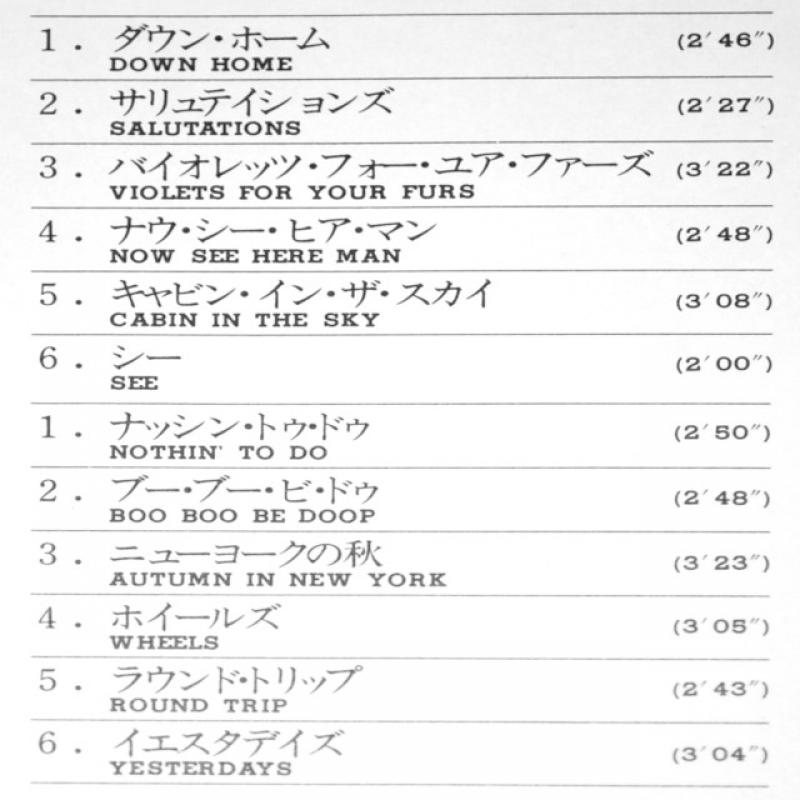 1. ダウン・ホーム (2′46″)
DOWN HOME
2. サリュテイションズ (2′27″)
SALUTATIONS
3. バイオレッツ・フォー・ユア・ファーズ (3′22″)
VIOLETS FOR YOUR FURS
4. ナウ・シー・ヒア・マン (2′48″)
NOW SEE HERE MAN
5. キャビン・イン・ザ・スカイ (3′08″)
CABIN IN THE SKY
6. シー (2′00″)
SEE
1. ナッシン・トゥ・ドゥ (2′50″)
NOTHIN' TO DO
2. ブー・ブー・ビ・ドゥ (2′48″)
BOO BOO BE DOOP
3. ニューヨークの秋 (3′23″)
AUTUMN IN NEW YORK
4. ホイールズ (3′05″)
WHEELS
5. ラウンド・トリップ (2′43″)
ROUND TRIP
6. イエスタデイズ (3′04″)
YESTERDAYS